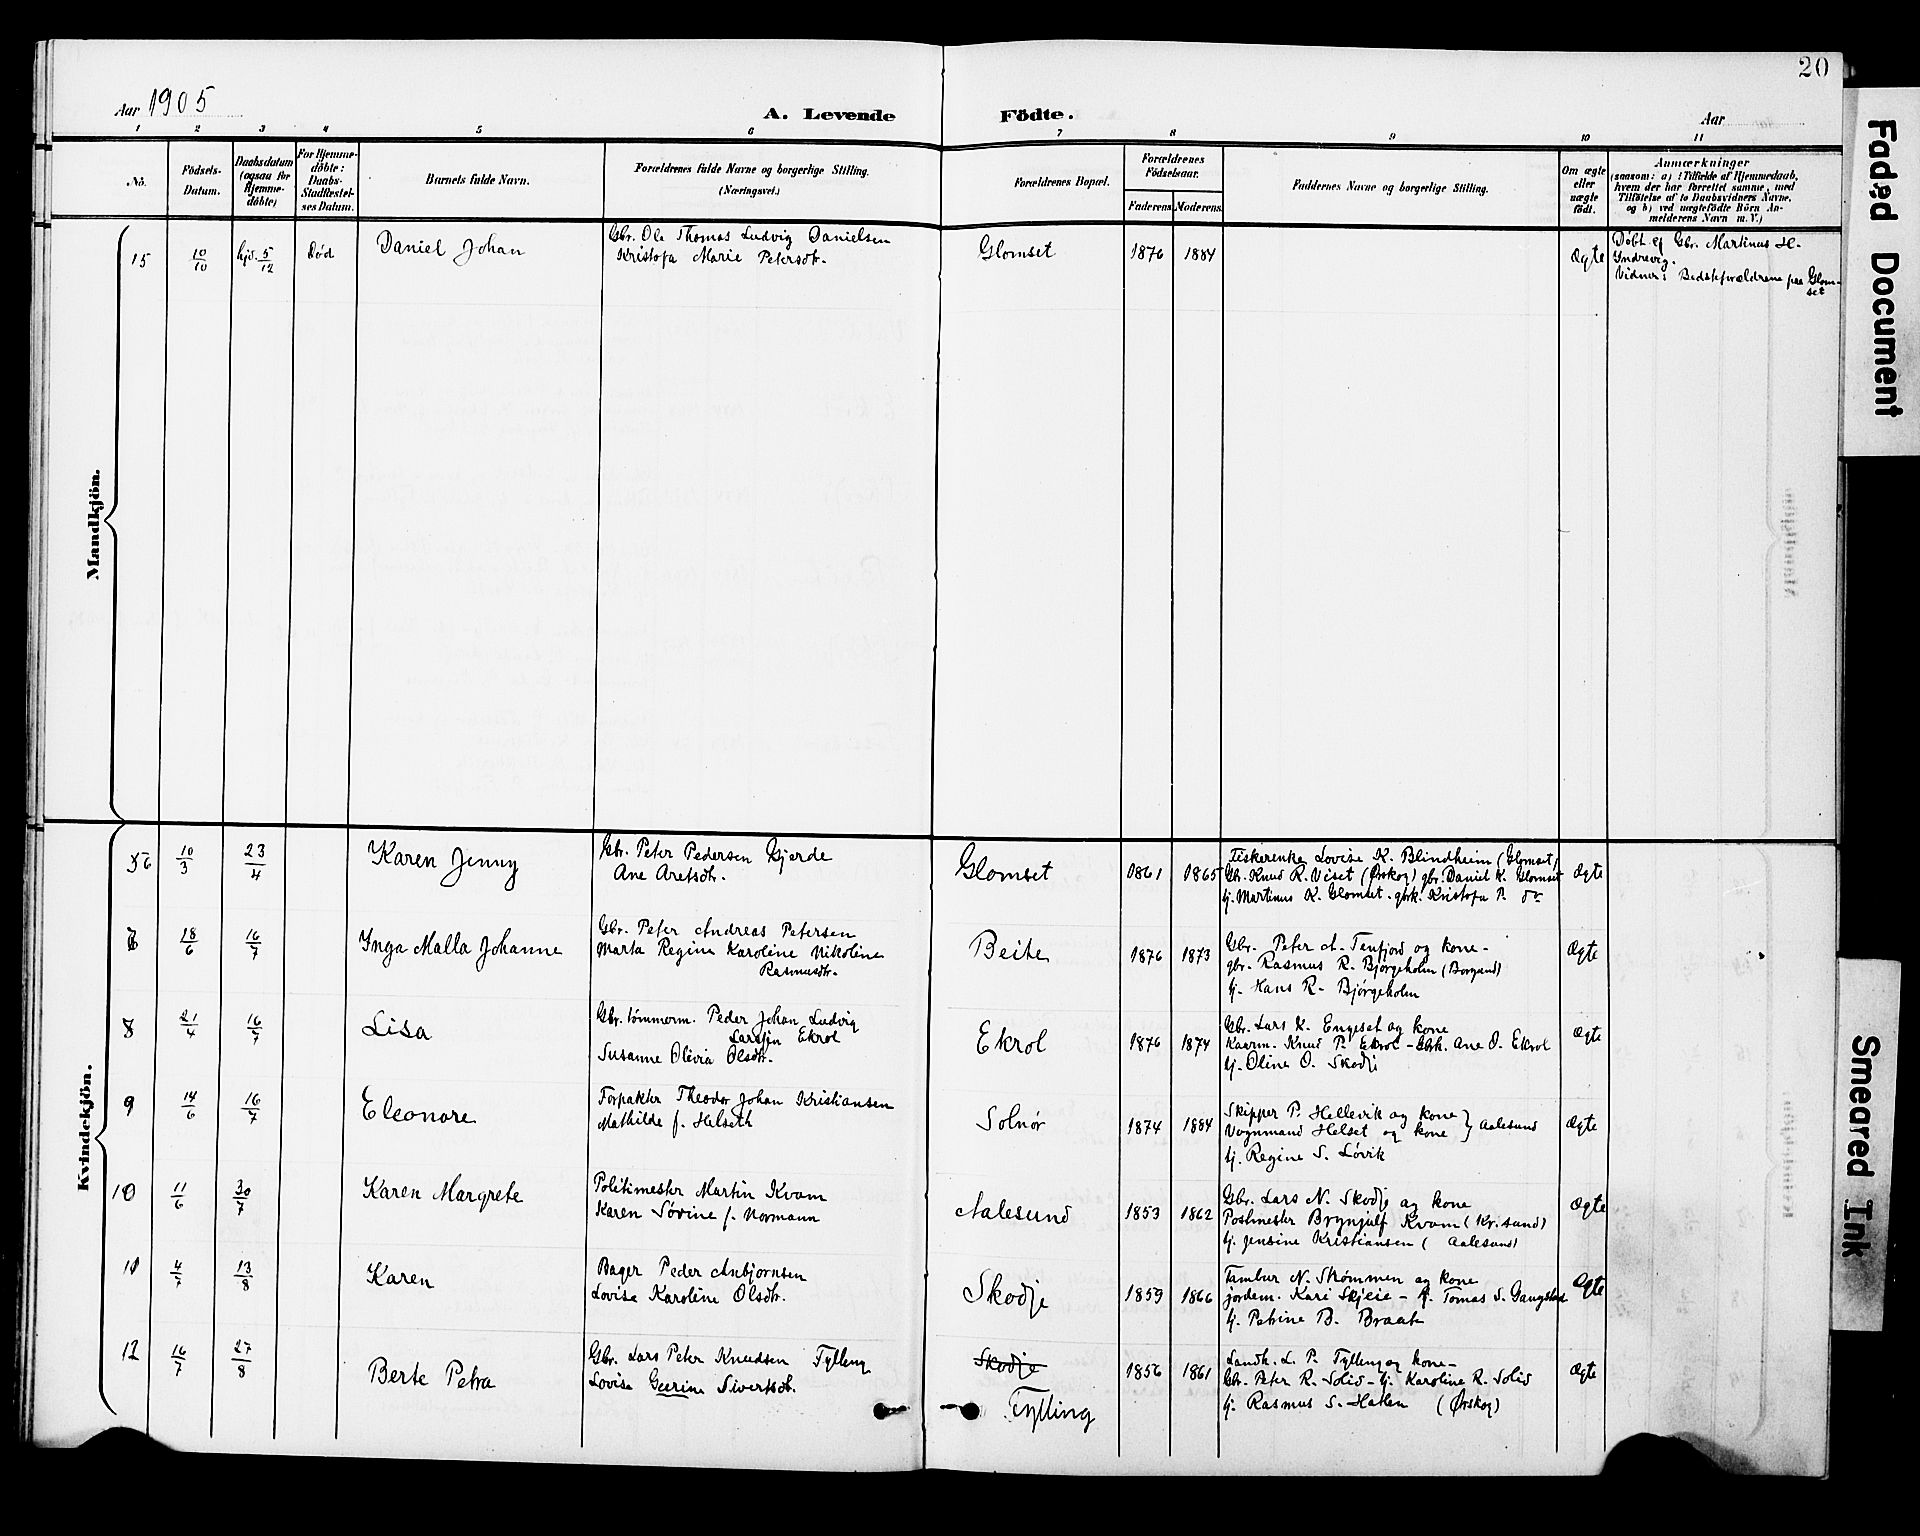 20
Aar 1905
A. Levende Födte.
Aar
1 2 3 4 5 6 7 8 9 10 11
No.
Födsels-
Datum.
Daabsdatum
(ogsaa for
Hjemme-
döbte)
For Hjemme-
döbte:
Daabs-
Stadfæstel-
ses Datum.
Barnets fulde Navn.
Forældrenes fulde Navne og borgerlige Stilling.
(Næringsvei.)
Forældrenes Bopæl.
Forældrenes
Födselsaar.
Faderens Moderens
Faddernes Navne og borgerlige Stilling.
Om ægte
eller
uægte
födt.
Anmærkninger
(saasom: a) i Tilfælde af Hjemmedaab,
hvem der har forrettet samme, med
Tilföielse af to Daabsvidners Navne,
og b) ved uægtefödte Börn An-
melderens Navn m. V.)
Mandkjön.
15 10/10 hjd. 5/12 Død Daniel Johan
Gbr. Ole Thomas Ludvig Danielsen
Kristofa Marie Petersdtr.
Glomset 1876 1884 Ægte
Døbt af Gbr. Martinus H.
Yndrevig.
Vidner: Bedsteforældrene paa Glom-
set
Kvindekjön.
6 10/3 23/4 Karen Jenny
Gbr. Peter Pedersen Gjerde
Ane Aretsdtr.
Glomset 1861 1865
Fiskerenke Lovise K. Blindheim (Glomset)
Gbr. Knud R. Viset (Ørskog) gbr. Daniel K. Glomset
tj. Martinus K. Glomset. gbrk. Kristofa P. do
Ægte
7 18/6 16/7 Inga Malla Johanne
Gbr. Peter Andreas Petersen
Marta Regine Karoline Nikoline
Rasmusdtr.
Beite 1876 1873
Gbr. Peter A. Tenfjord og kone -
gbr. Rasmus R. Bjørgeholm (Borgund)
tj. Hans R. Bjørgeholm
Ægte
8 21/4 16/7 Lisa
Gbr. tømmerm. Peder Johan Ludvig
Larssen Ekrol
Susanne Olivia Olsdtr.
Ekrol 1876 1874
Gbr. Lars K. Engeset og kone
Kaarm. Knud P. Ekrol - Gbrk. Ane O. Ekrol
tj. Oline O. Skodje
Ægte
9 14/6 16/7 Eleonore
Forpakter Theodor Johan Kristiansen
Mathilde f. Helseth
Solnør 1874 1884
Skipper P. Hellevik og kone }
Vognmand Helset og kone } Aalesund
tj. Regine S. Løvik
Ægte
10 11/6 30/7 Karen Margrete
Politimester Martin Kvam
Karen Sørine f. Normann
Aalesund 1853 1862
Gbr. Lars N. Skodje og kone
Postmester Brynjulf Kvam (Kr.sund)
tj. Jensine Kristiansen (Aalesund)
Ægte
11 4/7 13/8 Karen
Bager Peder Anbjørnsen
Lovise Karoline Olsdtr.
Skodje 1859 1866
Tambur N. Strømmen og kone
jordem. Kari Skjeie - tj. Tomas S. Gangstad
tj. Petrine B. Braate
Ægte
12 16/7 27/8 Berte Petra
Gbr. Lars Peter Knudsen Tylling
Lovise Geerine Sivertsdt.
Skodje
Tylling
1856 1861
Landh. L. P. Tylling og kone -
Gbr. Peter R. Solid - tj. Karoline R. Solid
tj. Rasmus S. Hatlen (Ørskog)
Ægte
Faded Document
Smeared Ink